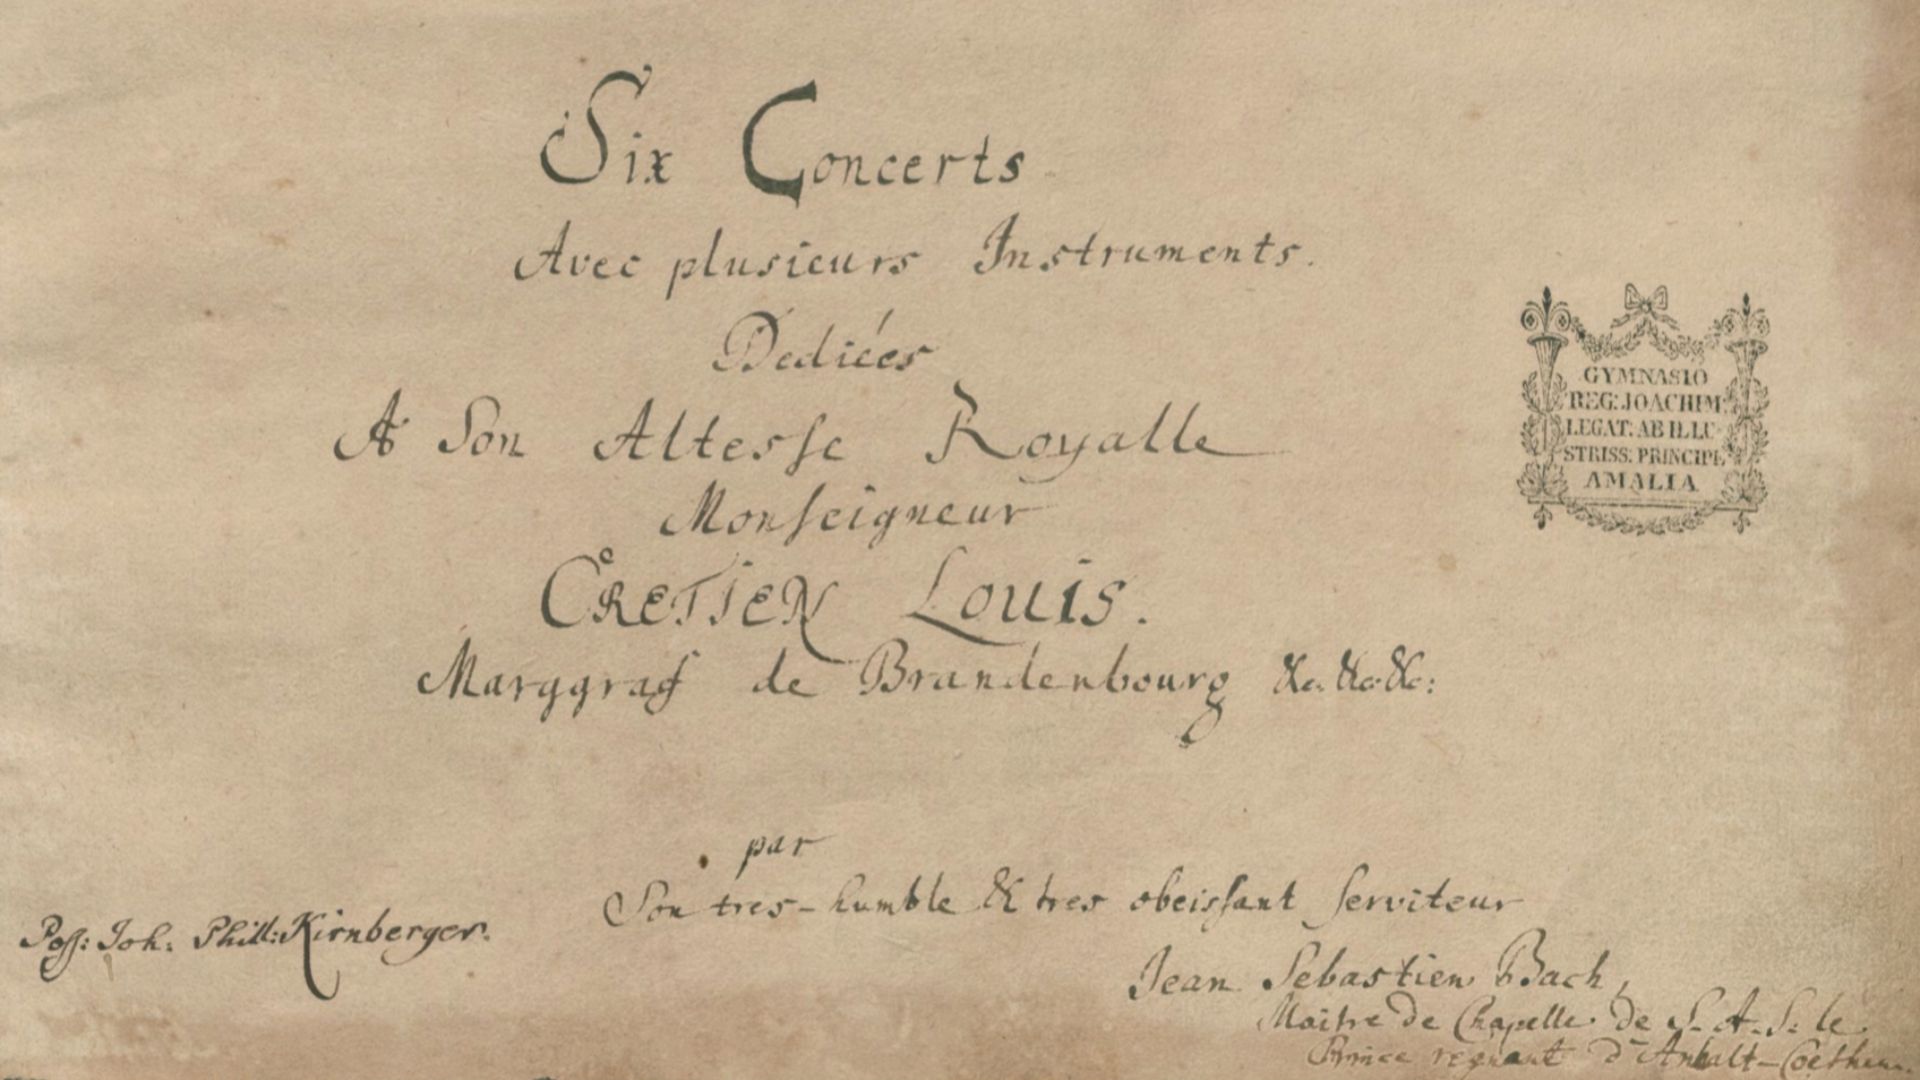 Six Concerts
Avec plusieurs Instruments.
Dediées
A Son Altesse Royalle
Monseigneur
CRETIEN LOUIS.
Marggraf de Brandenbourg &c. &c. &c:
par
Son tres-humble & tres obeissant serviteur
Jean Sebastien Bach,
Maitre de Chapelle de S. A. S. le
Prince regnant d'Anhalt-Coethen.
Poss: Joh: Phill: Kirnberger.
GYMNASIO
REG: JOACHIM:
LEGAT: AB ILLU-
STRISS: PRINCIPE
AMALIA